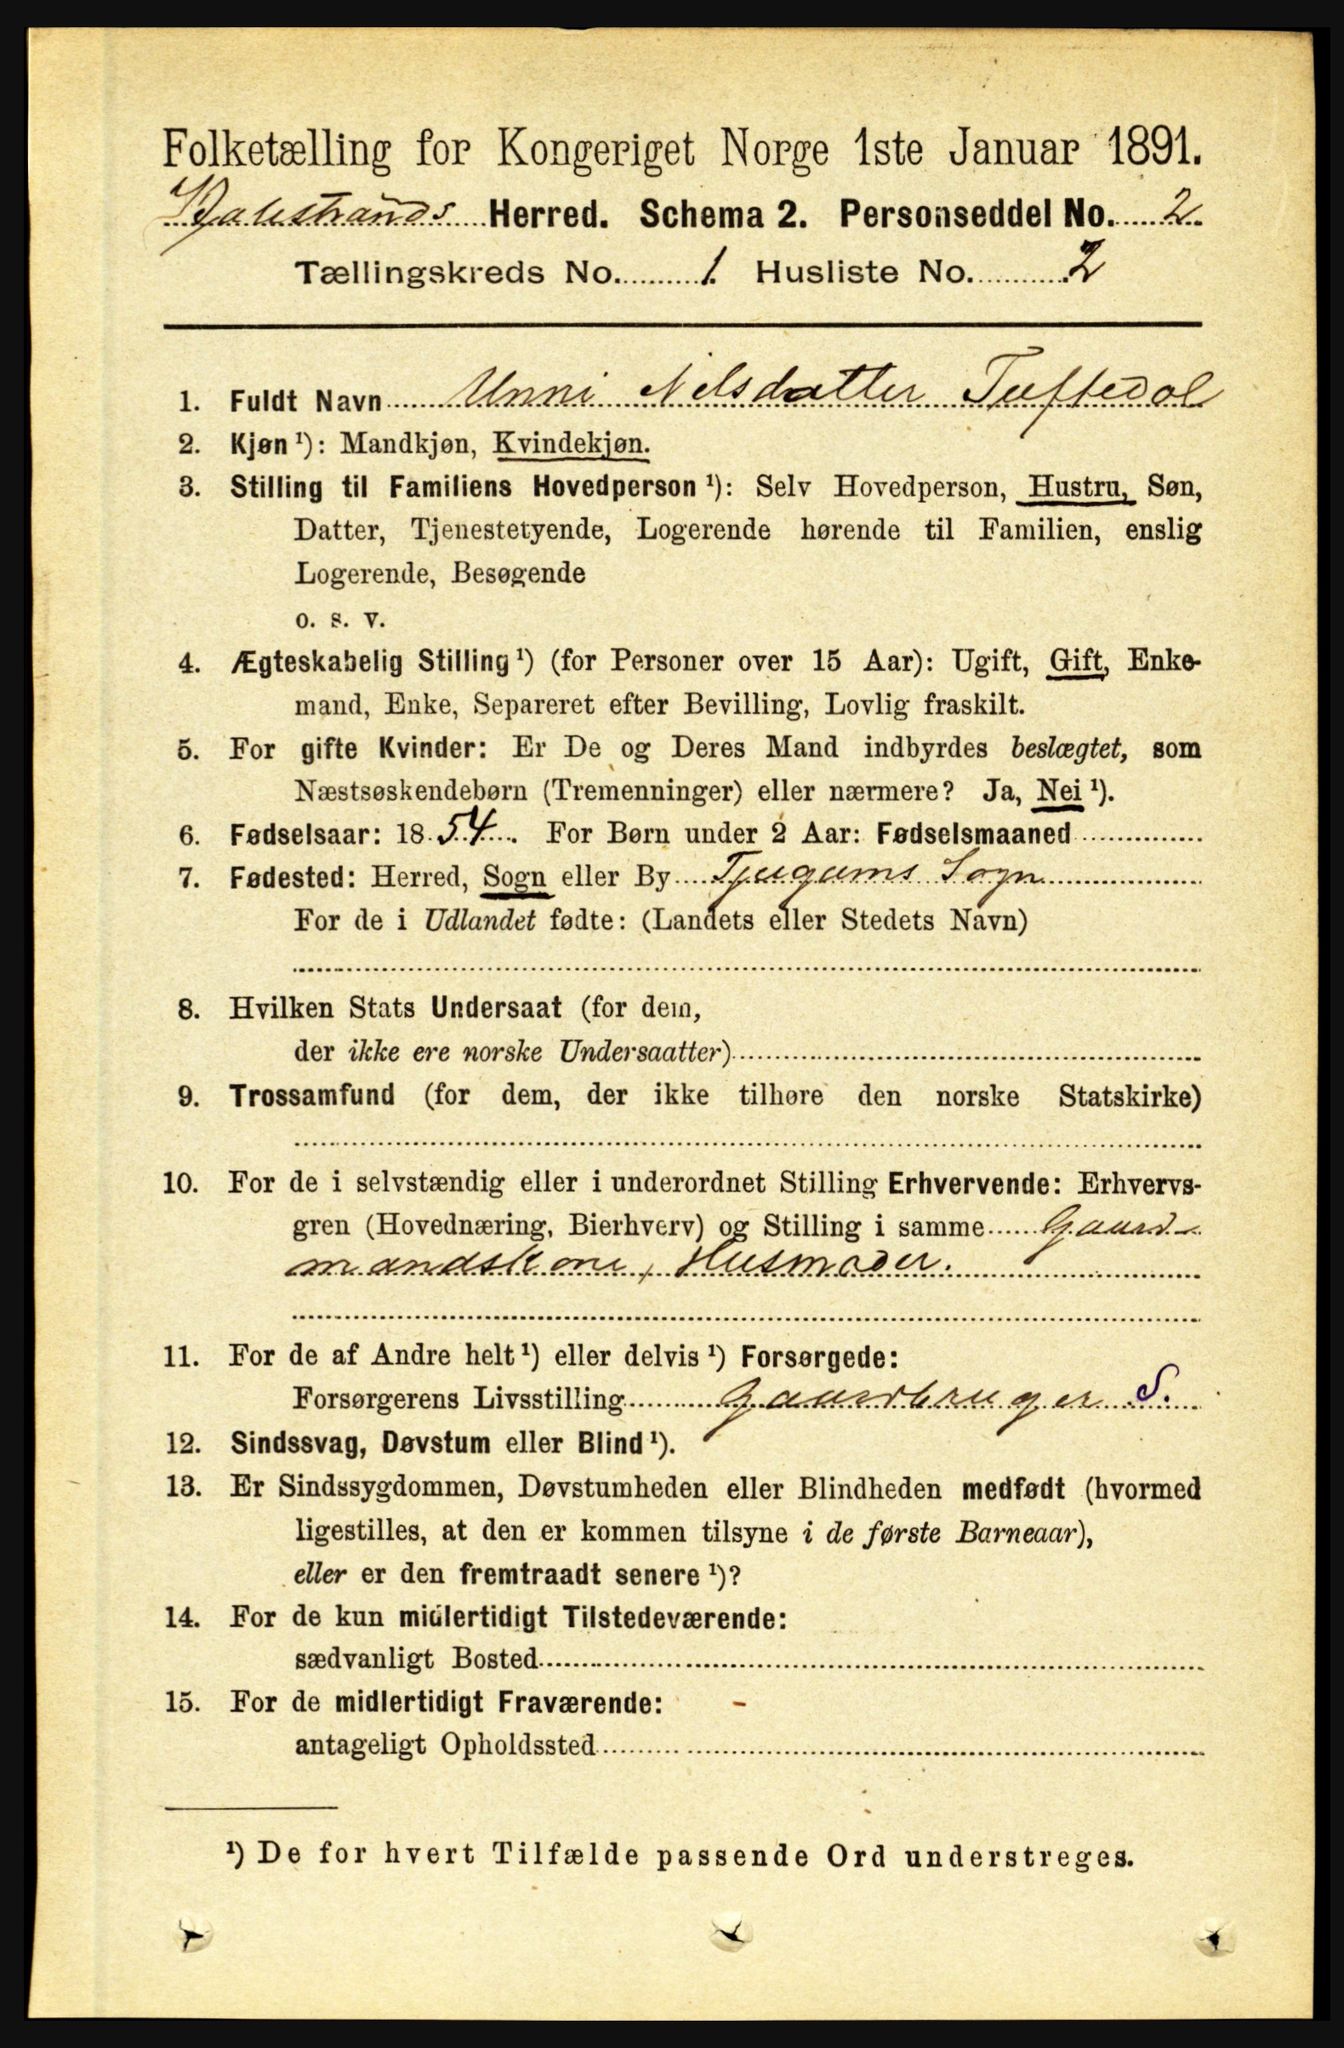 Folketælling for Kongeriget Norge 1ste Januar 1891.
Balestrands Herred. Schema 2. Personseddel No. 2
Tællingskreds No. 1. Husliste No. 2
1. Fuldt Navn Unni Nilsdatter Tuftedal
2. Kjøn ¹): Mandkjøn, Kvindekjøn.
3. Stilling til Familiens Hovedperson ¹): Selv Hovedperson, Hustru, Søn,
Datter, Tjenestetyende, Logerende hørende til Familien, enslig
Logerende, Besøgende
o. s. v.
4. Ægteskabelig Stilling ¹) (for Personer over 15 Aar): Ugift, Gift, Enke-
mand, Enke, Separeret efter Bevilling, Lovlig fraskilt.
5. For gifte Kvinder: Er De og Deres Mand indbyrdes beslægtet, som
Næstsøskendebørn (Tremenninger) eller nærmere? Ja, Nei ¹).
6. Fødselsaar: 1854. For Børn under 2 Aar: Fødselsmaaned
7. Fødested: Herred, Sogn eller By Tjugums Sogn
For de i Udlandet fødte: (Landets eller Stedets Navn)
8. Hvilken Stats Undersaat (for dem,
der ikke ere norske Undersaatter)
9. Trossamfund (for dem, der ikke tilhøre den norske Statskirke)
10. For de i selvstændig eller i underordnet Stilling Erhvervende: Erhvervs-
gren (Hovednæring, Bierhverv) og Stilling i samme Gaard-
mandskone, Husmoder.
11. For de af Andre helt ¹) eller delvis ¹) Forsørgede:
Forsørgerens Livsstilling gaardbruger S.
12. Sindssvag, Døvstum eller Blind ¹).
13. Er Sindssygdommen, Døvstumheden eller Blindheden medfødt (hvormed
ligestilles, at den er kommen tilsyne i de første Barneaar),
eller er den fremtraadt senere ¹)?
14. For de kun midlertidigt Tilstedeværende:
sædvanligt Bosted
15. For de midlertidigt Fraværende:
antageligt Opholdssted
¹) De for hvert Tilfælde passende Ord understreges.